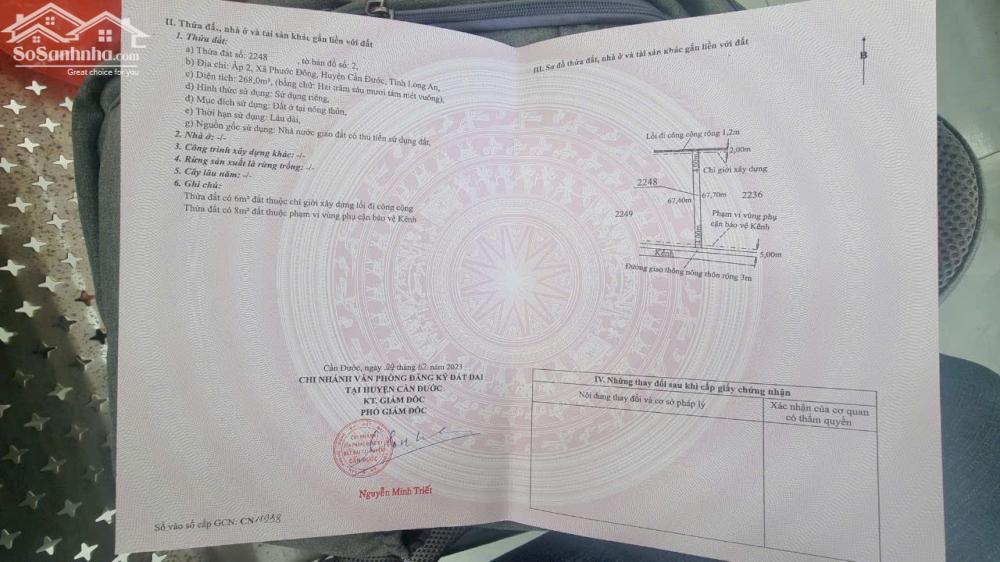 SoSanhnha.com
Great choice for you
II. Thửa đất, nhà ở và tài sản khác gắn liền với đất
1. Thửa đất:
a) Thửa đất số: 2248 , tờ bản đồ số: 2,
b) Địa chỉ: Ấp 2, Xã Phước Đông, Huyện Cần Đước, Tỉnh Long An,
c) Diện tích: 268,0m², (bằng chữ: Hai trăm sáu mươi tám mét vuông),
d) Hình thức sử dụng: Sử dụng riêng,
đ) Mục đích sử dụng: Đất ở tại nông thôn,
e) Thời hạn sử dụng: Lâu dài,
g) Nguồn gốc sử dụng: Nhà nước giao đất có thu tiền sử dụng đất,
2. Nhà ở: -/-
3. Công trình xây dựng khác: -/-
4. Rừng sản xuất là rừng trồng: -/-
5. Cây lâu năm: -/-
6. Ghi chú:
Thửa đất có 6m² đất thuộc chỉ giới xây dựng lối đi công cộng
Thửa đất có 8m² đất thuộc phạm vi vùng phụ cận bảo vệ Kênh
Cần Đước, ngày năm 2023
CHI NHÁNH VĂN PHÒNG ĐĂNG KÝ ĐẤT ĐAI
TẠI HUYỆN CẦN ĐƯỚC
KT. GIÁM ĐỐC
PHÓ GIÁM ĐỐC
CẦN ĐƯỚC
Nguyễn Minh Triết
Số vào sổ cấp GCN: CN11938
III. Sơ đồ thửa đất, nhà ở và tài sản khác gắn liền với đất
B
Lối đi công cộng rộng 1,2m
2,00m
4,00m
Chỉ giới xây dựng
2248
67,70m
2236
67,40m
2249
Phạm vi vùng phụ
cận bảo vệ Kênh
4,00m
Kênh
5,00m
Đường giao thông nông thôn rộng 3m
IV. Những thay đổi sau khi cấp giấy chứng nhận
Nội dung thay đổi và cơ sở pháp lý
Xác nhận của cơ quan
có thẩm quyền